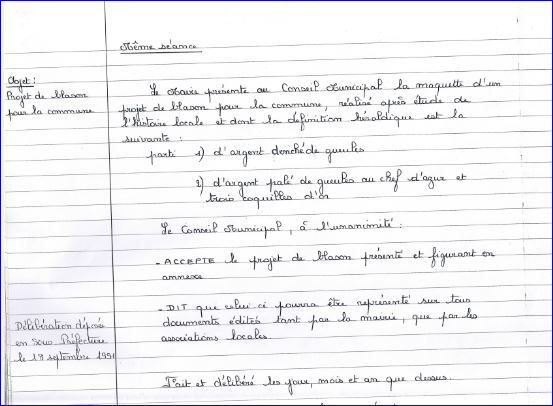 Même séance
Objet :
Projet de blason
pour la commune
Le Maire présente au Conseil Municipal la maquette d'un
projet de blason pour la commune, réalisé après étude de
l'histoire locale et dont la définition héraldique est la
suivante :
parti 1) d'argent denché de gueules
2) d'argent palé de gueules au chef d'azur et
trois coquilles d'or
Le Conseil Municipal, à l'unanimité :
- ACCEPTE le projet de blason présenté et figurant en
annexe
- DIT que celui ci pourra être représenté sur tous
documents édités tant par la mairie, que par les
associations locales.
Délibération déposée
en Sous Préfecture
le 17 septembre 1991
Fait et délibéré les jour, mois et an que dessus.